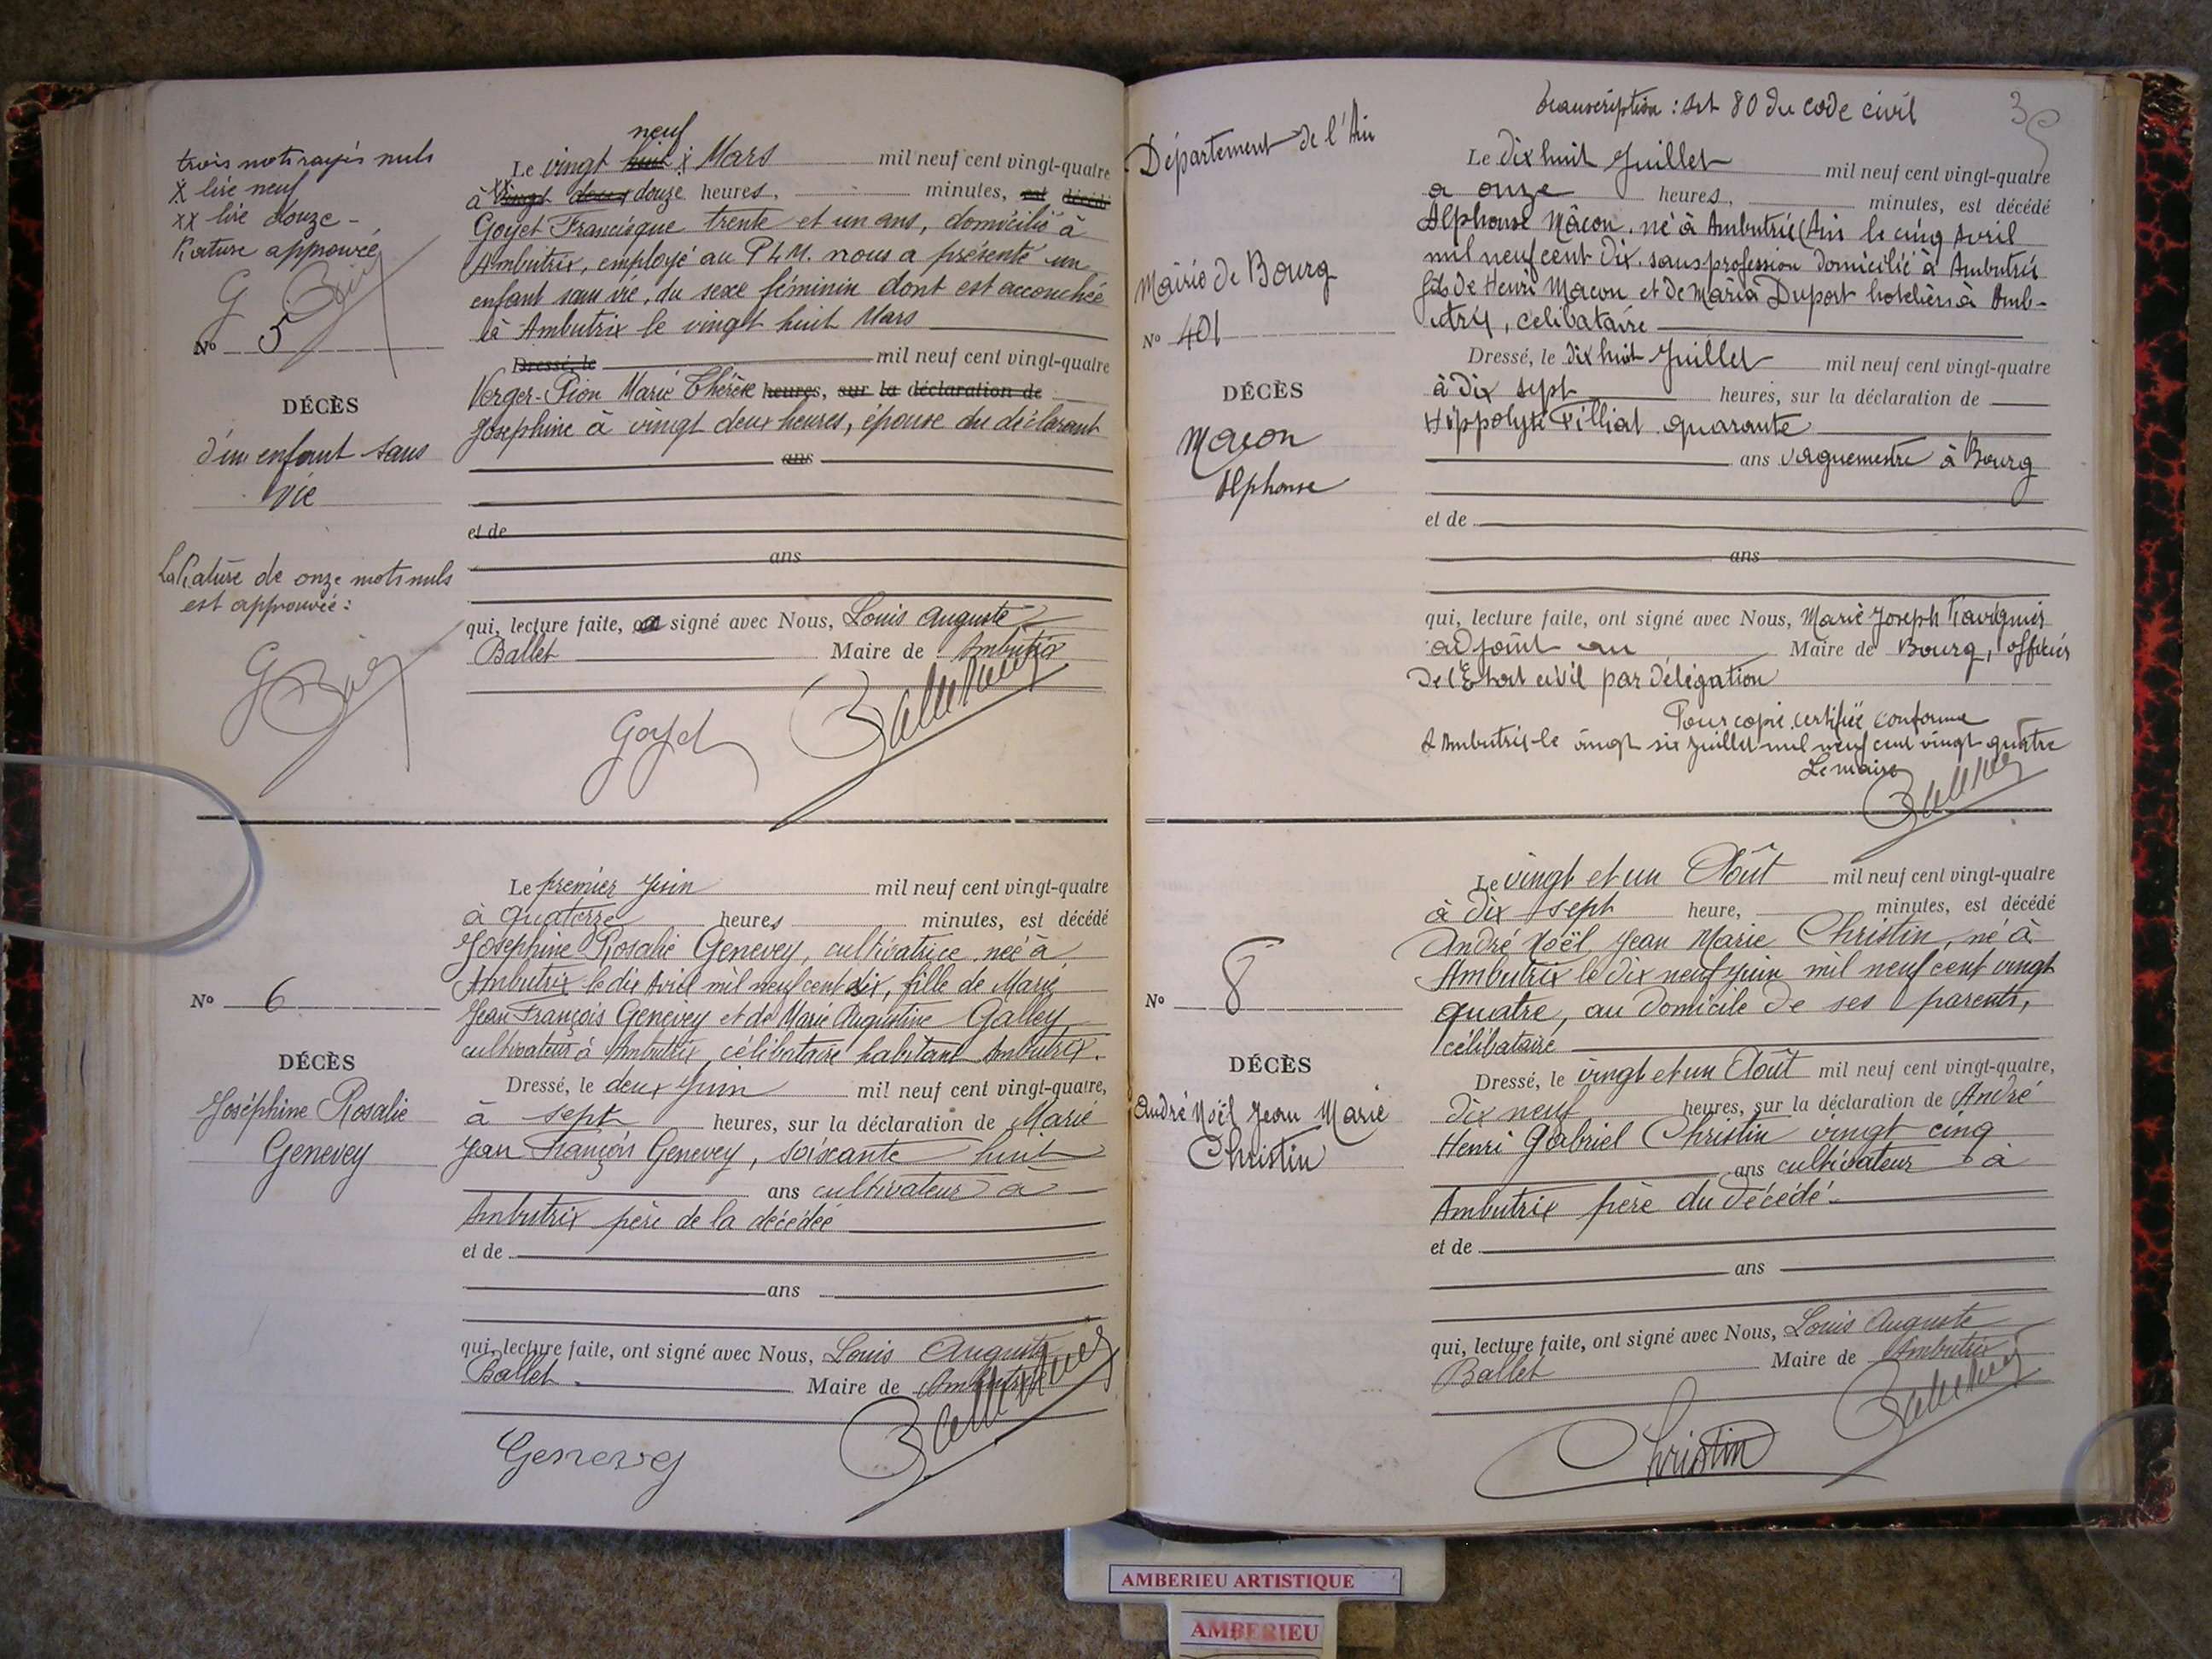 trois mots rayés nuls
x lire neuf
xx lire douze -
Rature approuvée
G
No 5
DÉCÈS
d'un enfant sans
vie
La Rature de onze mots nuls
est approuvée :
neuf
Le vingt huit x Mars mil neuf cent vingt-quatre
à xx vingt deux douze heures, minutes, est décédé
Goyet Francisque trente et un ans, domicilié à
Ambutrix, employé au P L M. nous a présenté un
enfant sans vie, du sexe féminin dont est accouchée
à Ambutrix le vingt huit Mars
Dressé, le mil neuf cent vingt-quatre
Verger-Pion Marie Thérèse heures, sur la déclaration de
Josephine à vingt deux heures, épouse du déclarant
ans
et de
ans
qui, lecture faite, signé avec Nous, Louis Auguste
Ballet Maire de Ambutrix
Goyet
No 6
DÉCÈS
Joséphine Rosalie
Genevey
Le premier Juin mil neuf cent vingt-quatre
à quatorze heures minutes, est décédé
Josephine Rosalie Genevey, cultivatrice née à
Ambutrix le dix Avril mil neuf cent dix, fille de Marie
Jean François Genevey et de Marie Augustine Galley
cultivateurs à Ambutrix, célibataire habitant Ambutrix.
Dressé, le deux Juin mil neuf cent vingt-quatre,
à sept heures, sur la déclaration de Marie
Jean François Genevey, soixante huit
ans cultivateur à
Ambutrix père de la décédée
et de
ans
qui, lecture faite, ont signé avec Nous, Louis Auguste
Ballet Maire de Ambutrix
Genevey
transcription : Art 80 du code civil
Département de l'Ain
Mairie de Bourg
No 401
DÉCÈS
Macon
Alphonse
Le dix huit Juillet mil neuf cent vingt-quatre
a onze heures, minutes, est décédé
Alphonse Mâcon, né à Ambutrix (Ain le cinq Avril
mil neuf cent dix, sans profession domicilié à Ambutrix
fils de Henri Macon et de Maria Duport hoteliers à Amb-
utrix, celibataire
Dressé, le dix huit Juillet mil neuf cent vingt-quatre
à Dix sept heures, sur la déclaration de
Hippolyte Filliat quarante
ans vaguemestre à Bourg
et de
ans
qui, lecture faite, ont signé avec Nous, Marie Joseph
adjoint au Maire de Bourg, officier
De l'Etat civil par délégation
Pour copie certifiée conforme
A Ambutrix le vingt six Juillet mil neuf cent vingt quatre
Le maire
No 8
DÉCÈS
André Noël Jean Marie
Christin
Le vingt et un Août mil neuf cent vingt-quatre
à dix sept heure, minutes, est décédé
André Noël Jean Marie Christin, né à
Ambutrix le dix neuf Juin mil neuf cent vingt
quatre, au domicile de ses parents,
célibataire
Dressé, le vingt et un Août mil neuf cent vingt-quatre,
dix neuf heures, sur la déclaration de André
Henri Gabriel Christin vingt cinq
ans cultivateur à
Ambutrix père du décédé
et de
ans
qui, lecture faite, ont signé avec Nous, Louis Auguste
Ballet Maire de Ambutrix
Christin
AMBERIEU ARTISTIQUE
AMBERIEU